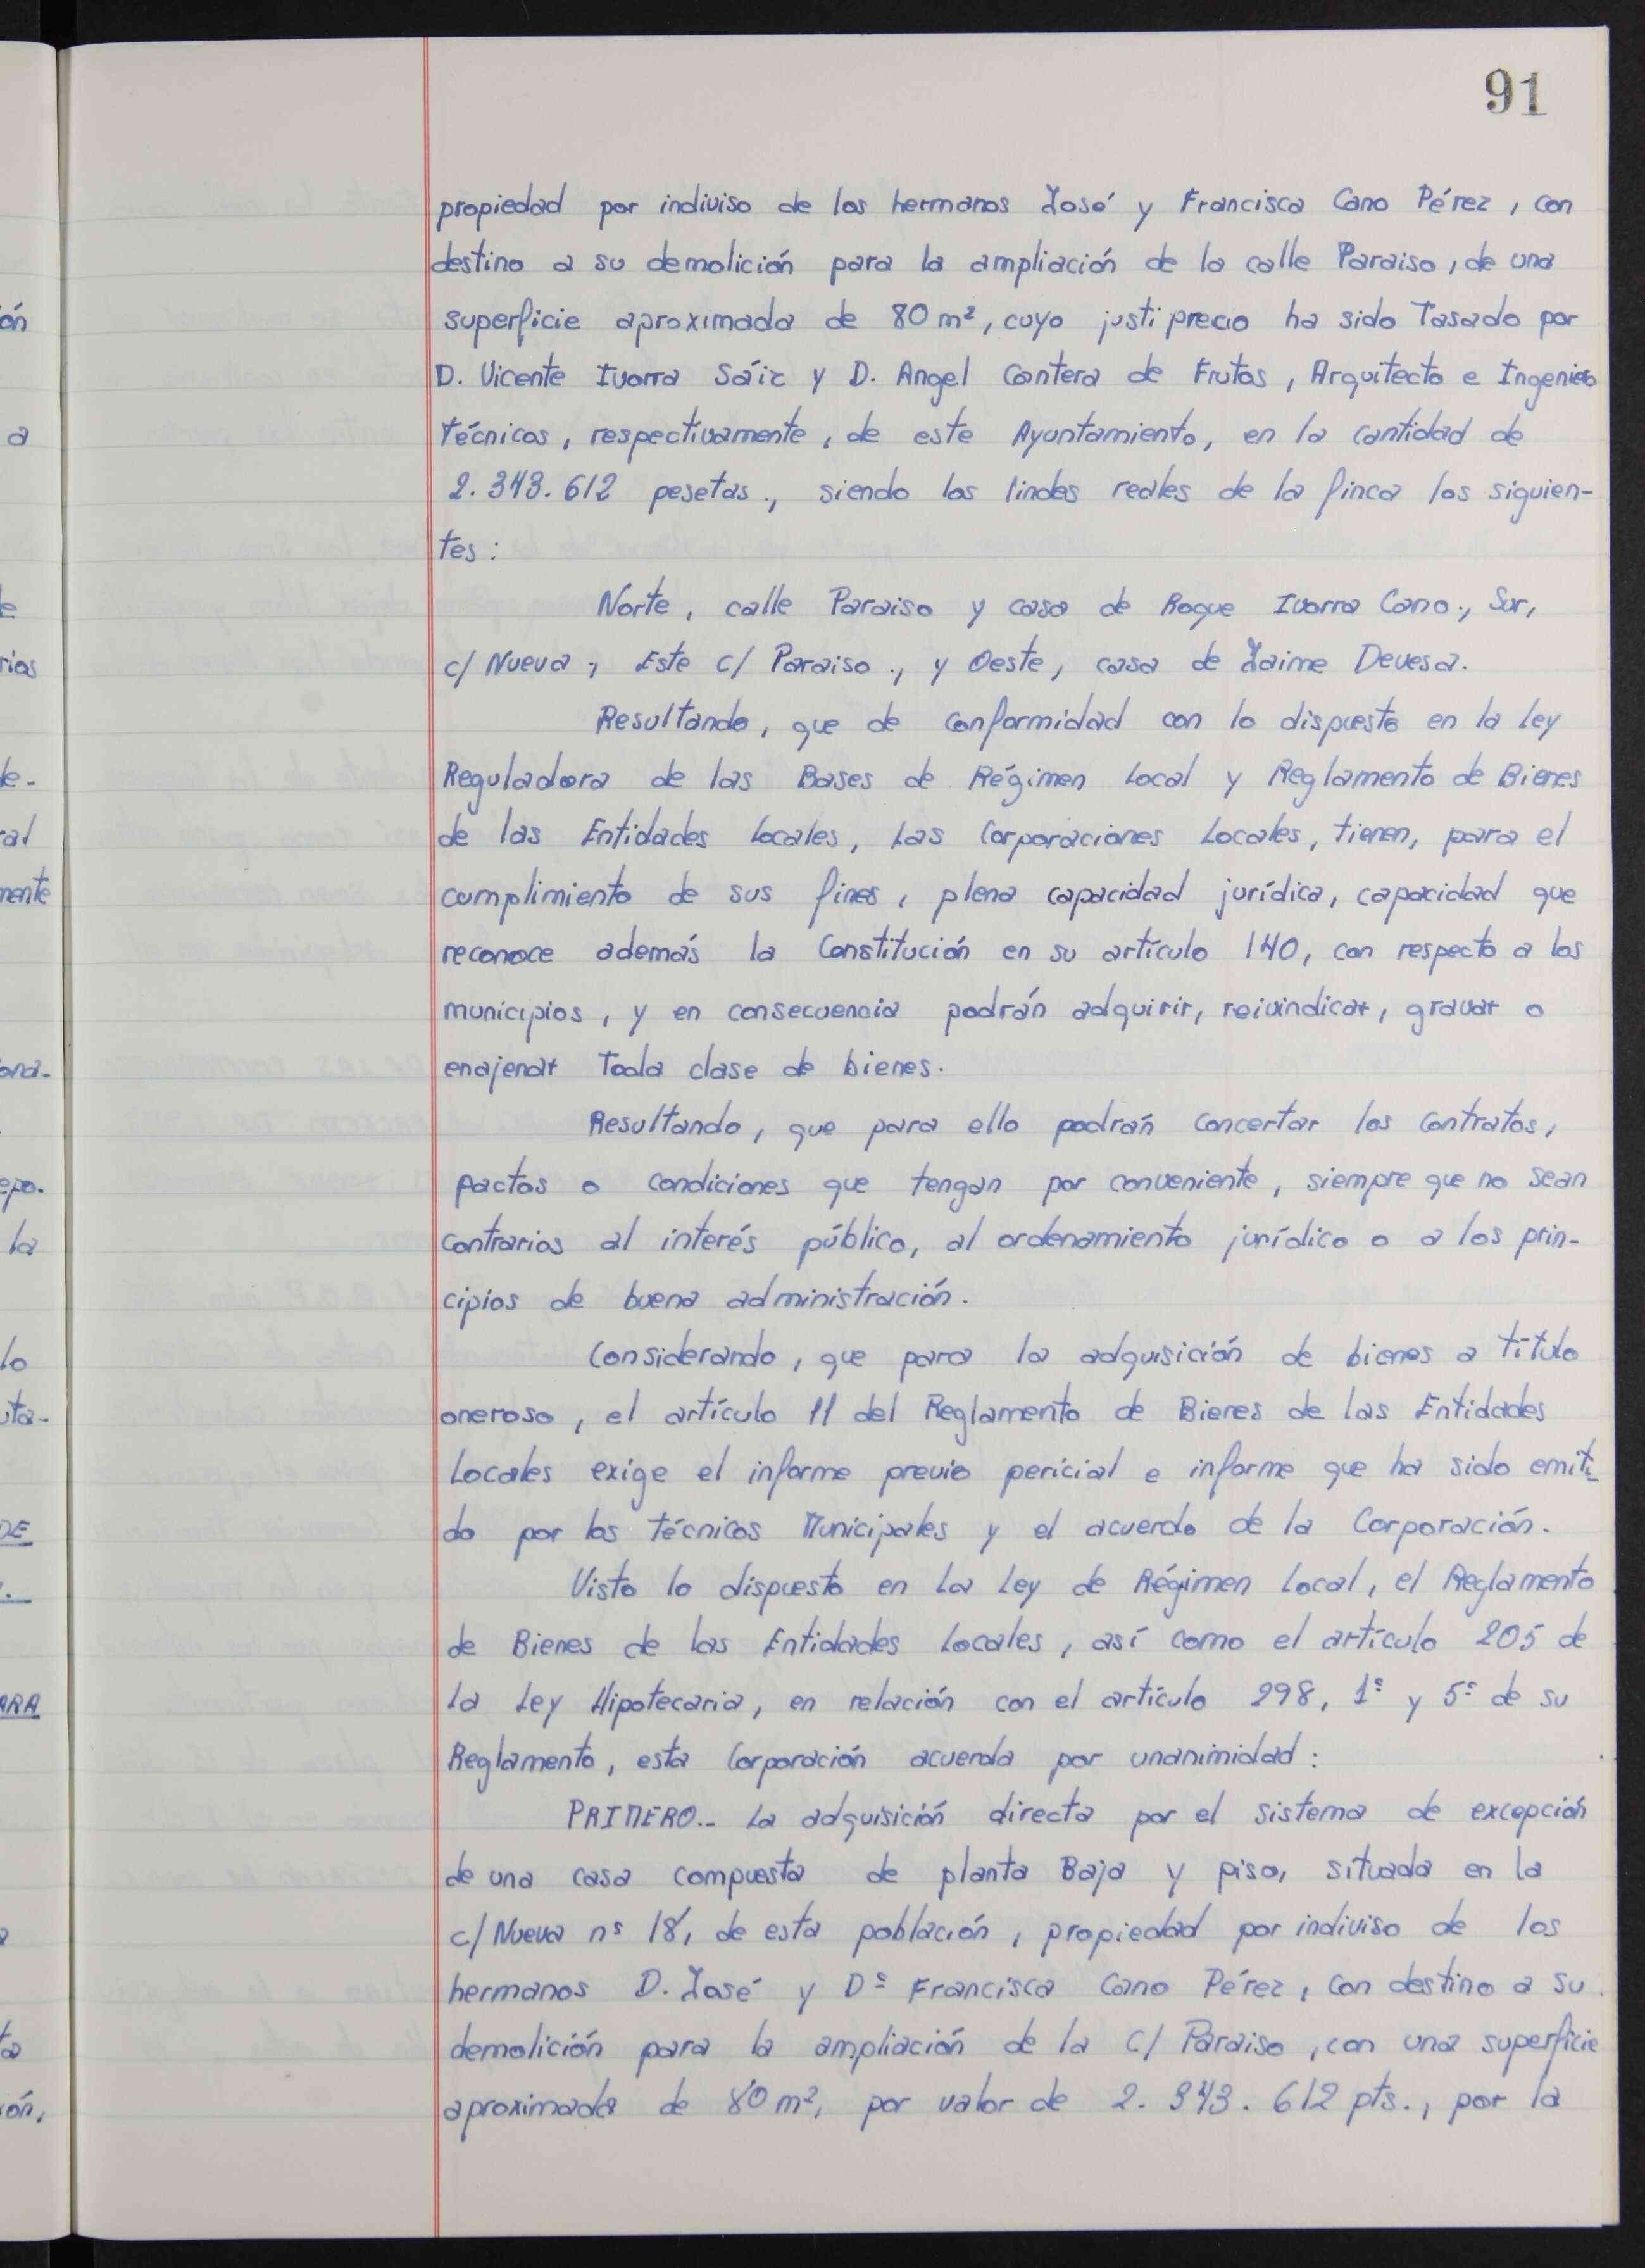 91
propiedad por indiviso de los hermanos José y Francisca Cano Pérez, con
destino a su demolición para la ampliación de la calle Paraiso, de una
superficie aproximada de 80 m², cuyo justiprecio ha sido Tasado por
D. Vicente Ivorra Sáiz y D. Angel Cantera de Frutos, Arquitecto e Ingeniero
Técnicos, respectivamente, de este Ayuntamiento, en la cantidad de
2.343.612 pesetas., siendo los lindes reales de la finca los siguien-
tes:
Norte, calle Paraiso y casa de Roque Ivorra Cano., Sur,
c/ Nueva ; Este c/ Paraiso ., y Oeste, casa de Jaime Devesa.
Resultando, que de conformidad con lo dispuesto en la Ley
Reguladora de las Bases de Régimen Local y Reglamento de Bienes
de las Entidades Locales, Las Corporaciones Locales, tienen, para el
cumplimiento de sus fines, plena capacidad jurídica, capacidad que
reconoce además la Constitución en su artículo 140, con respecto a los
municipios, y en consecuencia podrán adquirir, reivindicar, gravar o
enajenar Toda clase de bienes.
Resultando, que para ello podrán concertar los contratos,
pactos o condiciones que tengan por conveniente, siempre que no sean
contrarios al interés público, al ordenamiento jurídico o a los prin-
cipios de buena administración.
Considerando, que para la adquisición de bienes a título
oneroso, el artículo 11 del Reglamento de Bienes de las Entidades
Locales exige el informe previo pericial e informe que ha sido emiti-
do por los Técnicos Municipales y el acuerdo de la Corporación.
Visto lo dispuesto en la Ley de Régimen Local, el Reglamento
de Bienes de las Entidades Locales, así como el artículo 205 de
la Ley Hipotecaria, en relación con el artículo 298, 1º y 5º de su
Reglamento, esta Corporación acuerda por unanimidad:
PRIMERO.- La adquisición directa por el sistema de excepción
de una casa compuesta de planta Baja y piso, situada en la
c/ Nueva nº 18, de esta población, propiedad por indiviso de los
hermanos D. José y Dª Francisca Cano Pérez, con destino a su
demolición para la ampliación de la C/ Paraiso, con una superficie
aproximada de 80 m², por valor de 2.343.612 pts., por la